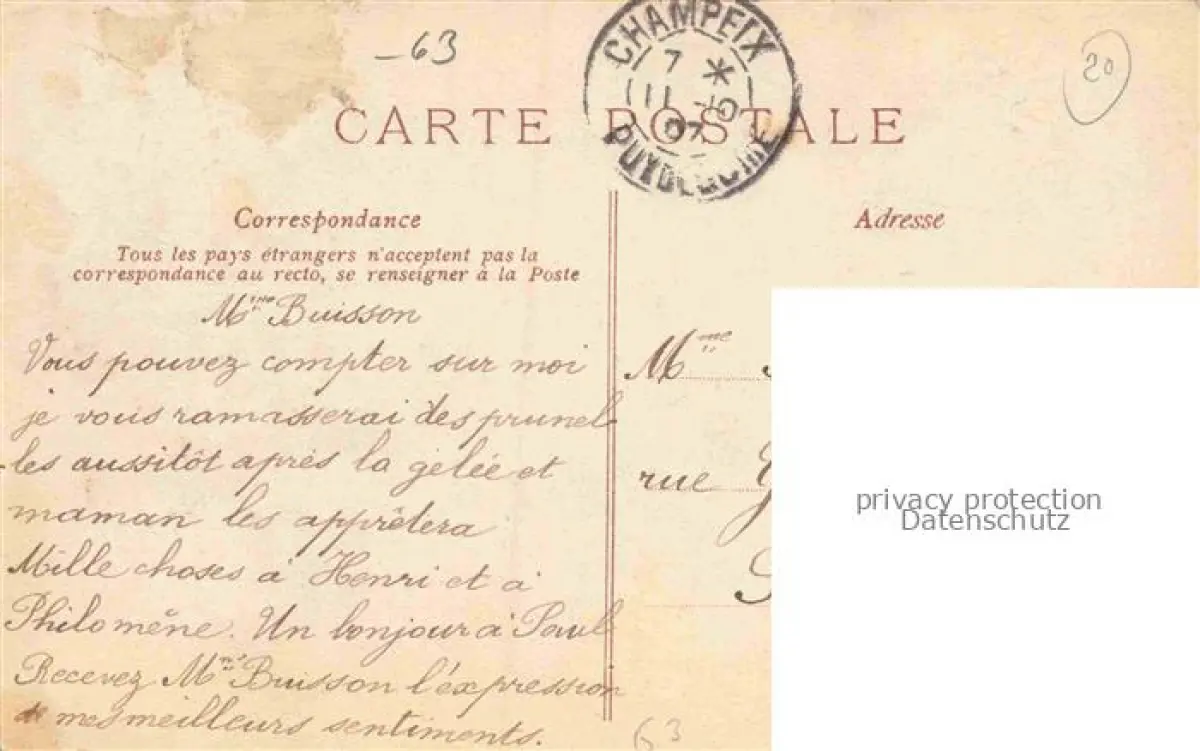 -63
20
CHAMPEIX
7 *
11 -9
07
PUY DE DOME
CARTE POSTALE
Correspondance
Tous les pays étrangers n'acceptent pas la
correspondance au recto, se renseigner à la Poste
Adresse
Mme Buisson
Vous pouvez compter sur moi
je vous ramasserai des prunel
les aussitôt après la gelée et
maman les apprêtera
Mille choses à Henri et à
Philomène. Un bonjour à Paul
Recevez Mme Buisson l'expression
de mes meilleurs sentiments.
Mme
rue
privacy protection
Datenschutz
63